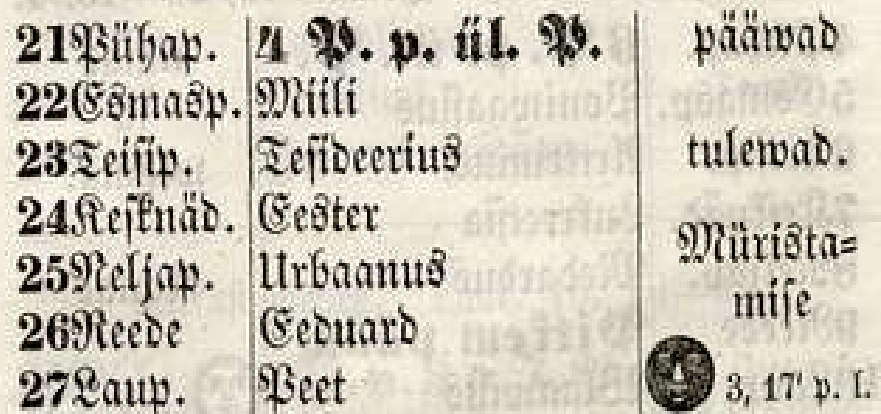 21 Pühap. 4 P. p. ül. P. pääwad
22 Esmasp. Miili
23 Teisip. Tesideerius tulewad.
24 Kesknäd. Eester
25 Neljap. Urbaanus Mürista=
26 Reede Eeduard mise
27 Laup. Peet 3, 17' p. l.